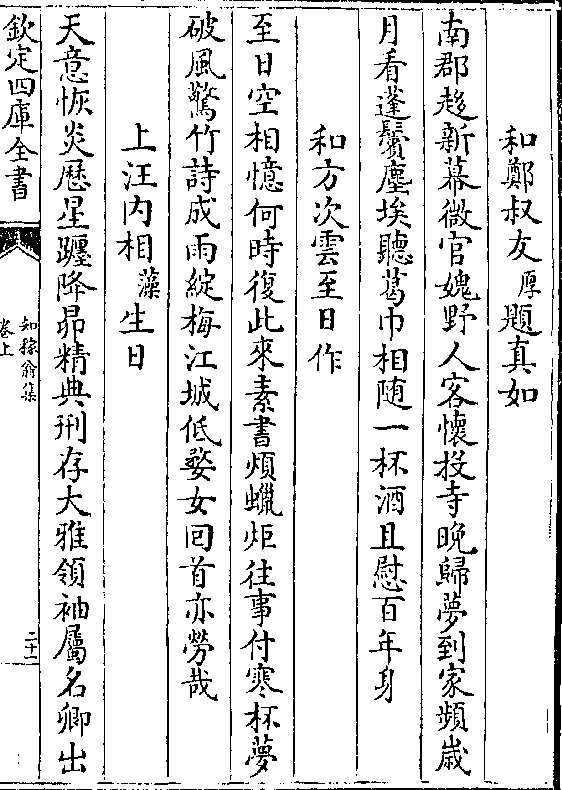 和鄭叔友厚題真如
南郡趍新幕微官媿野人客懷投寺晚歸夢到家頻嵗
月看蓬鬢塵埃聽葛巾相随一杯酒且慰百年身
和方次雲至日作
至日空相憶何時復此來素書煩蠟炬往事付寒杯夢
破風驚竹詩成雨綻梅江城低婺女回首亦勞哉
上汪内相藻生日
天意恢炎厯星躔降昴精典刑存大雅領袖屬名卿出
欽定四庫全書
知稼翁集
卷上
二十一